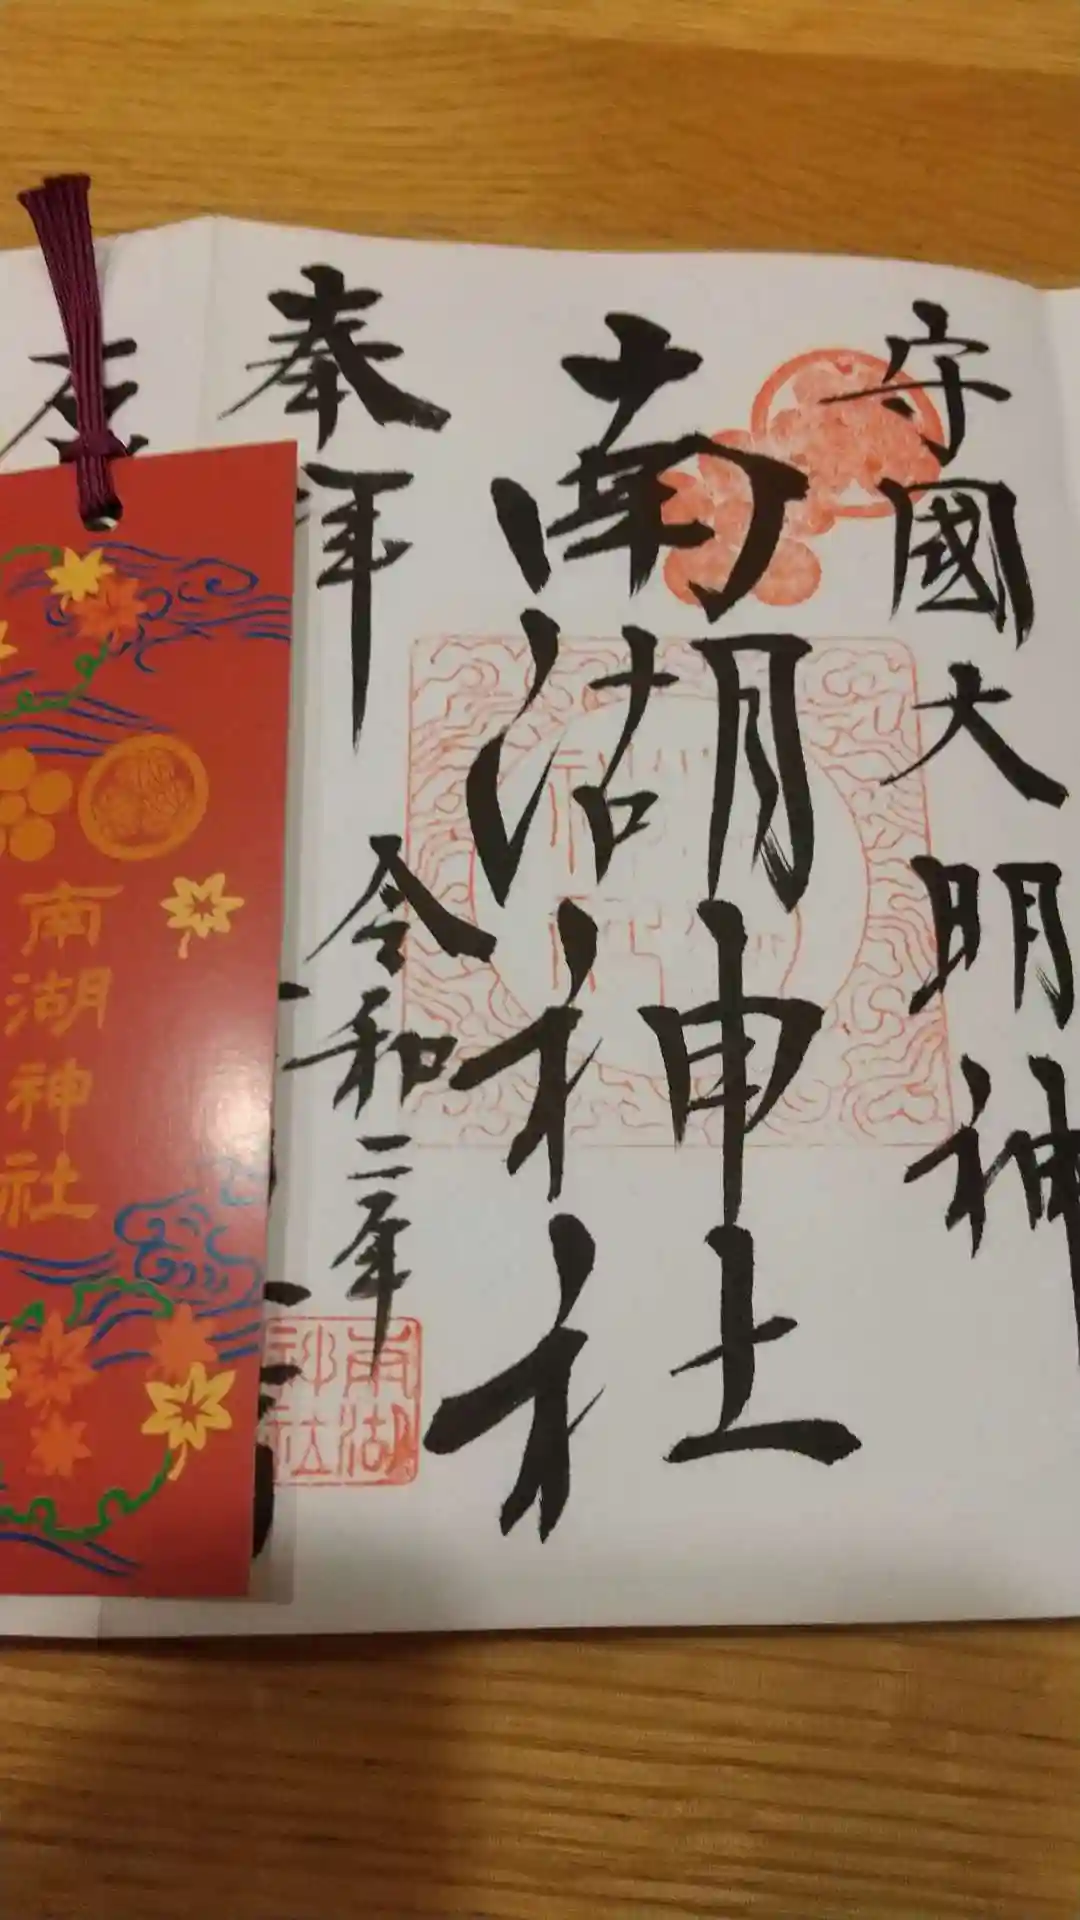 守國大明神
南湖神社
奉拜
令和二年
南湖
神社
南湖神社